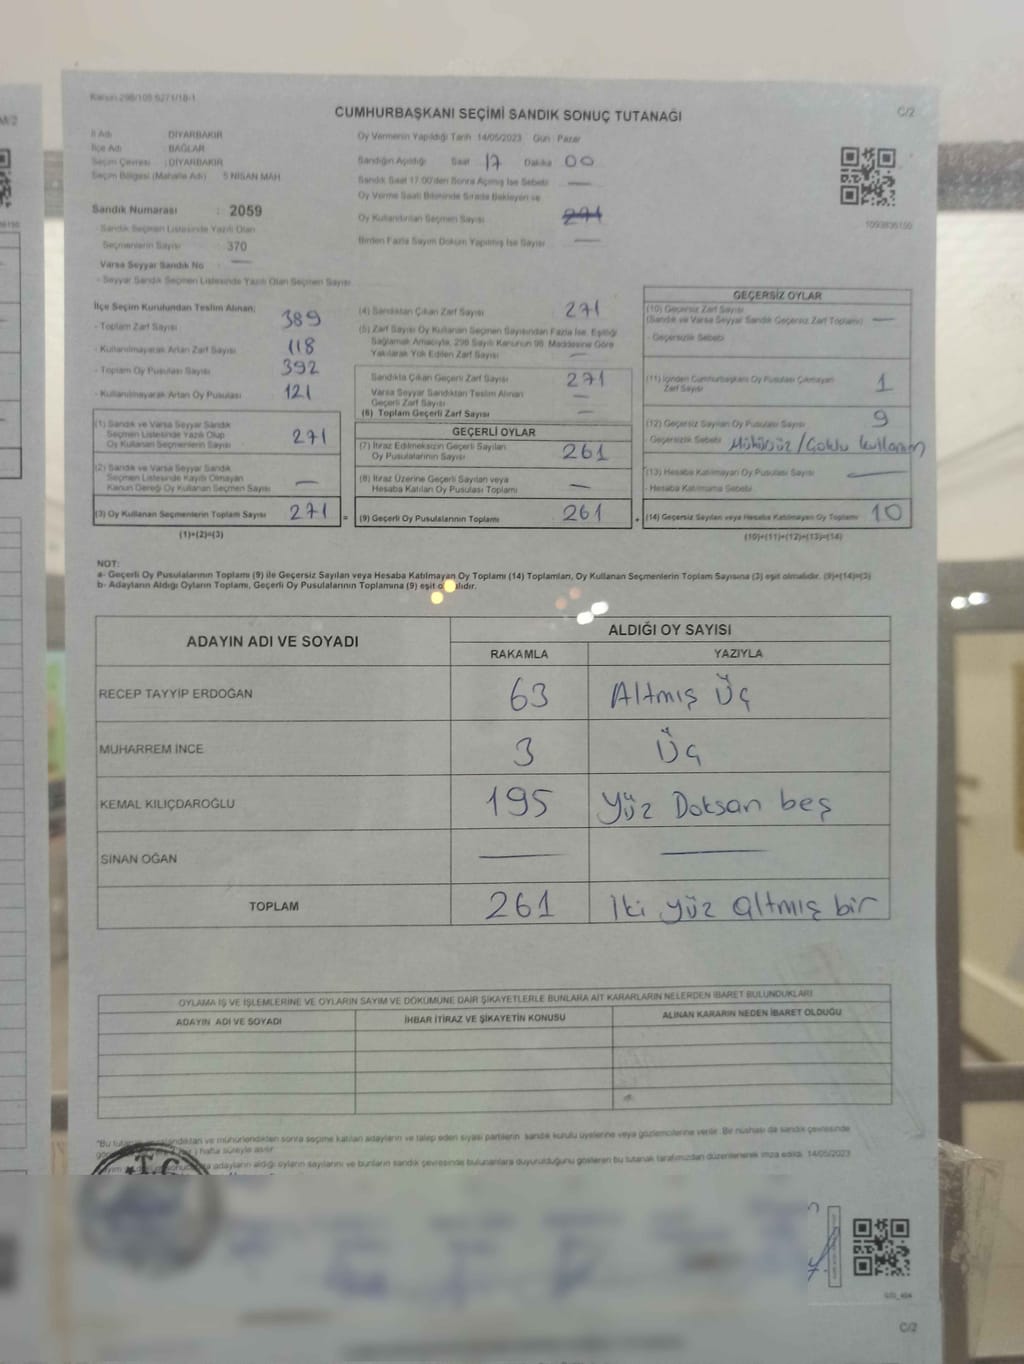 Kanun 298/105 6271/18-1
CUMHURBAŞKANI SEÇİMİ SANDIK SONUÇ TUTANAĞI
C/2
İl Adı : DİYARBAKIR
İlçe Adı : BAĞLAR
Seçim Çevresi : DİYARBAKIR
Seçim Bölgesi (Mahalle Adı) 5 NİSAN MAH
Sandık Numarası : 2059
- Sandık Seçmen Listesinde Yazılı Olan
Seçmenlerin Sayısı 370
Varsa Seyyar Sandık No —
- Seyyar Sandık Seçmen Listesinde Yazılı Olan Seçmen Sayısı
Oy Vermenin Yapıldığı Tarih 14/05/2023 Gün : Pazar
Sandığın Açıldığı Saat 17 Dakika 00
Sandık Saat 17.00'den Sonra Açılmış İse Sebebi —
Oy Verme Saati Bitiminde Sırada Bekleyen ve
Oy Kullandırılan Seçmen Sayısı 271
Birden Fazla Sayım Döküm Yapılmış İse Sayısı —
1093836150
İlçe Seçim Kurulundan Teslim Alınan;
- Toplam Zarf Sayısı 389
- Kullanılmayarak Artan Zarf Sayısı 118
- Toplam Oy Pusulası Sayısı 392
- Kullanılmayarak Artan Oy Pusulası 121
(1) Sandık ve Varsa Seyyar Sandık
Seçmen Listesinde Yazılı Olup
Oy Kullanan Seçmenlerin Sayısı 271
(2) Sandık ve Varsa Seyyar Sandık
Seçmen Listesinde Kayıtlı Olmayan
Kanun Gereği Oy Kullanan Seçmen Sayısı —
(3) Oy Kullanan Seçmenlerin Toplam Sayısı 271 =
(1)+(2)=(3)
(4) Sandıktan Çıkan Zarf Sayısı 271
(5) Zarf Sayısı Oy Kullanan Seçmen Sayısından Fazla İse, Eşitliği
Sağlamak Amacıyla, 298 Sayılı Kanunun 98. Maddesine Göre
Yakılarak Yok Edilen Zarf Sayısı —
Sandıkta Çıkan Geçerli Zarf Sayısı 271
Varsa Seyyar Sandıktan Teslim Alınan
Geçerli Zarf Sayısı —
(6) Toplam Geçerli Zarf Sayısı —
GEÇERLİ OYLAR
(7) İtiraz Edilmeksizin Geçerli Sayılan
Oy Pusulalarının Sayısı 261
(8) İtiraz Üzerine Geçerli Sayılan veya
Hesaba Katılan Oy Pusulası Toplamı —
(9) Geçerli Oy Pusulalarının Toplamı 261 +
GEÇERSİZ OYLAR
(10) Geçersiz Zarf Sayısı
(Sandık ve Varsa Seyyar Sandık Geçersiz Zarf Toplamı) —
- Geçersizlik Sebebi
(11) İçinden Cumhurbaşkanı Oy Pusulası Çıkmayan
Zarf Sayısı 1
(12) Geçersiz Sayılan Oy Pusulası Sayısı 9
Geçersizlik Sebebi Mühürsüz / Çoklu kullanım
(13) Hesaba Katılmayan Oy Pusulası Sayısı —
- Hesaba Katılmama Sebebi
(14) Geçersiz Sayılan veya Hesaba Katılmayan Oy Toplamı 10
(10)+(11)+(12)+(13)=(14)
NOT:
a- Geçerli Oy Pusulalarının Toplamı (9) ile Geçersiz Sayılan veya Hesaba Katılmayan Oy Toplamı (14) Toplamları, Oy Kullanan Seçmenlerin Toplam Sayısına (3) eşit olmalıdır. (9)+(14)=(3)
b- Adayların Aldığı Oyların Toplamı, Geçerli Oy Pusulalarının Toplamına (9) eşit olmalıdır.
ADAYIN ADI VE SOYADI
ALDIĞI OY SAYISI
RAKAMLA YAZIYLA
RECEP TAYYİP ERDOĞAN 63 Altmış Üç
MUHARREM İNCE 3 Üç
KEMAL KILIÇDAROĞLU 195 Yüz Doksan beş
SİNAN OĞAN — —
TOPLAM 261 İki yüz altmış bir
OYLAMA İŞ VE İŞLEMLERİNE VE OYLARIN SAYIM VE DÖKÜMÜNE DAİR ŞİKAYETLERLE BUNLARA AİT KARARLARIN NELERDEN İBARET BULUNDUKLARI
ADAYIN ADI VE SOYADI İHBAR İTİRAZ VE ŞİKAYETİN KONUSU ALINAN KARARIN NEDEN İBARET OLDUĞU
ve mühürlendikten sonra seçime katılan adayların ve talep eden siyasi partilerin sandık kurulu üyelerine veya gözlemcilerine verilir. Bir nüshası da sandık çevresinde
hafta süreyle asılır.
adayların aldığı oyların sayılarını ve bunların sandık çevresinde bulunanlara duyurulduğunu gösteren bu tutanak tarafımızdan düzenlenerek imza edildi. 14/05/2023
T.C
C/2